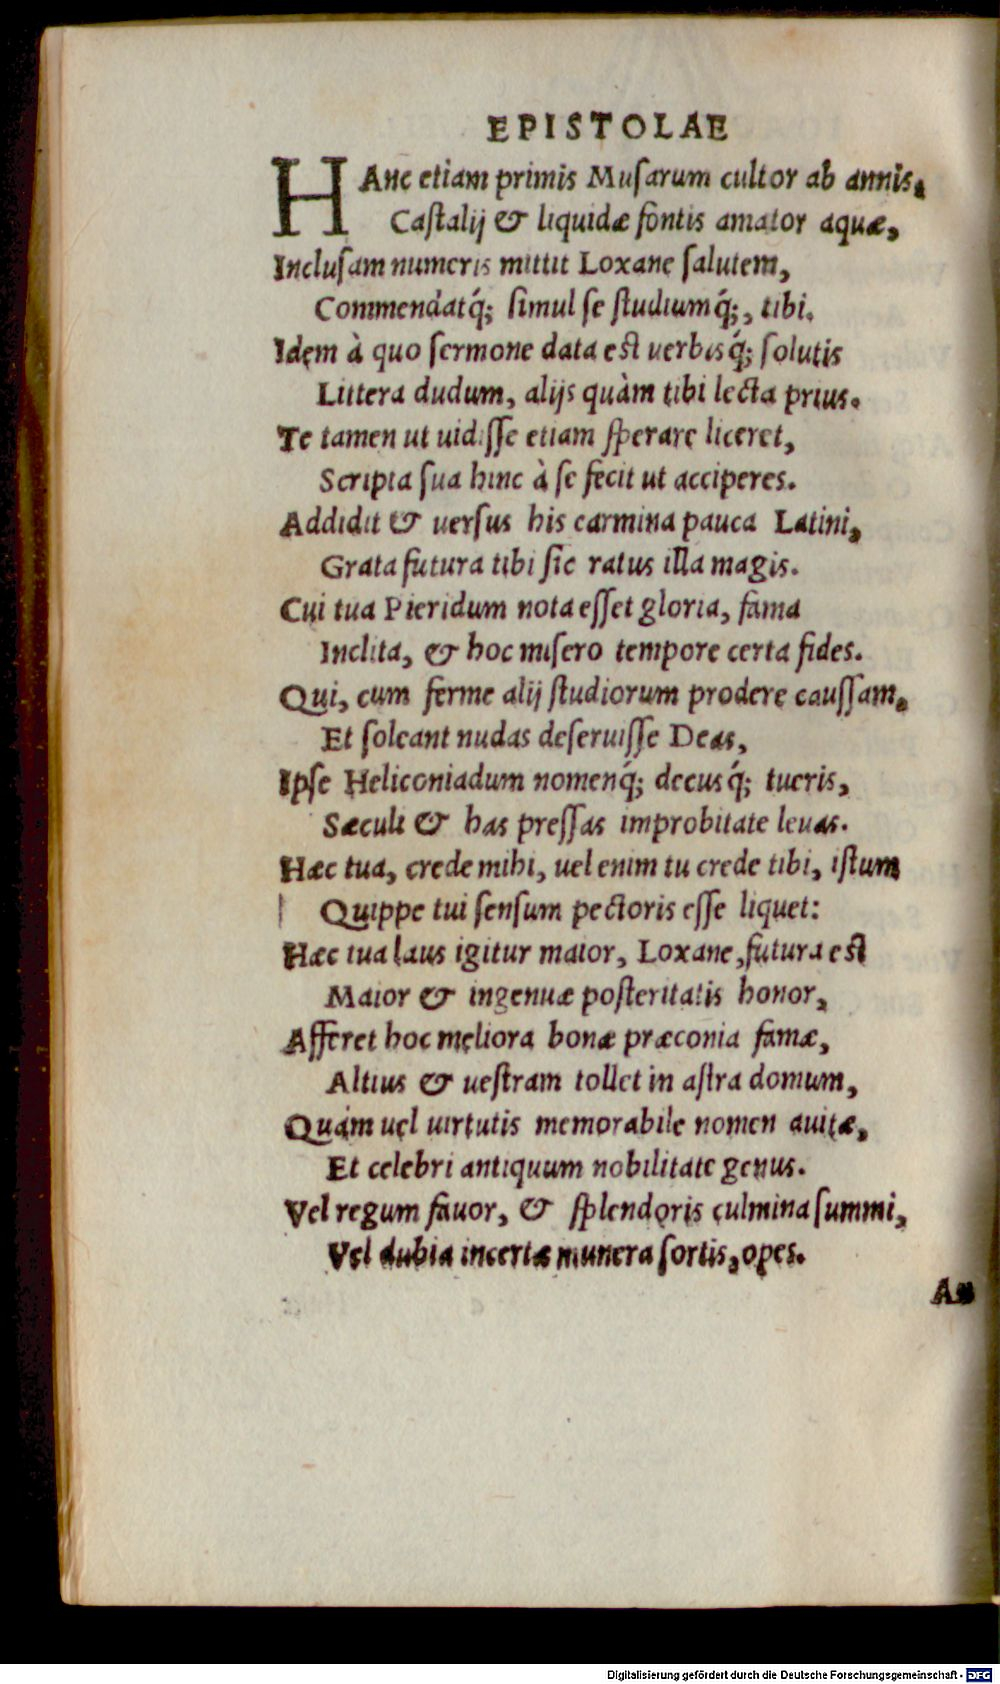 EPISTOLAE
HAnc etiam primis Muſarum cultor ab annis,
Caſtalij & liquidæ fontis amator aquæ,
Incluſam numeris mittit Loxane ſalutem,
Commendatq́; ſimul ſe ſtudiumq́;, tibi.
Idem à quo ſermone data eſt uerbisq́; ſolutis
Littera dudum, alijs quàm tibi lecta prius.
Te tamen ut uidiſſe etiam ſperare liceret,
Scripta ſua hinc à ſe fecit ut acciperes.
Addidit & uerſus his carmina pauca Latini,
Grata futura tibi ſic ratus illa magis.
Cui tua Pieridum nota eſſet gloria, fama
Inclita, & hoc miſero tempore certa fides.
Qui, cum ferme alij ſtudiorum prodere cauſſam,
Et ſoleant nudas deſeruiſſe Deas,
Ipſe Heliconiadum nomenq́; decusq́; tueris,
Sæculi & has preſſas improbitate leuas.
Hæc tua, crede mihi, uel enim tu crede tibi, iſtum
Quippe tui ſenſum pectoris eſſe liquet:
Hæc tua laus igitur maior, Loxane, futura eſt
Maior & ingenuæ poſteritatis honor,
Afferet hoc meliora bonæ præconia famæ,
Altius & ueſtram tollet in aſtra domum,
Quám uel uirtutis memorabile nomen auitæ,
Et celebri antiquum nobilitate genus.
Vel regum fauor, & ſplendoris culmina ſummi,
Vel dubia incertæ munera ſortis, opes.
An
Digitalisierung gefördert durch die Deutsche Forschungsgemeinschaft - DFG